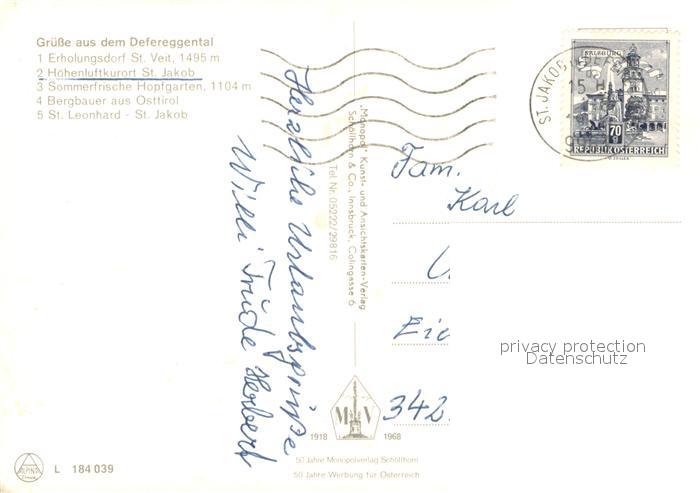 Grüße aus dem Defereggental
1 Erholungsdorf St. Veit, 1495 m
2 Höhenluftkurort St. Jakob
3 Sommerfrische Hopfgarten, 1104 m
4 Bergbauer aus Osttirol
5 St. Leonhard - St. Jakob
Herzliche Urlaubsgrüße
Willi Trude Herbert
„Monopol" Kunst- und Ansichtskarten-Verlag
Schöllhorn & Co., Innsbruck, Colingasse 6
Tel. Nr. 05222/29816
SALZBURG
70
REPUBLIK ÖSTERREICH
ST. JAKOB
15
Fam.
Karl
Zie
342
privacy protection
Datenschutz
M V
1918 1968
50 Jahre Monopolverlag Schöllhorn
50 Jahre Werbung für Österreich
ALPINA
L 184 039